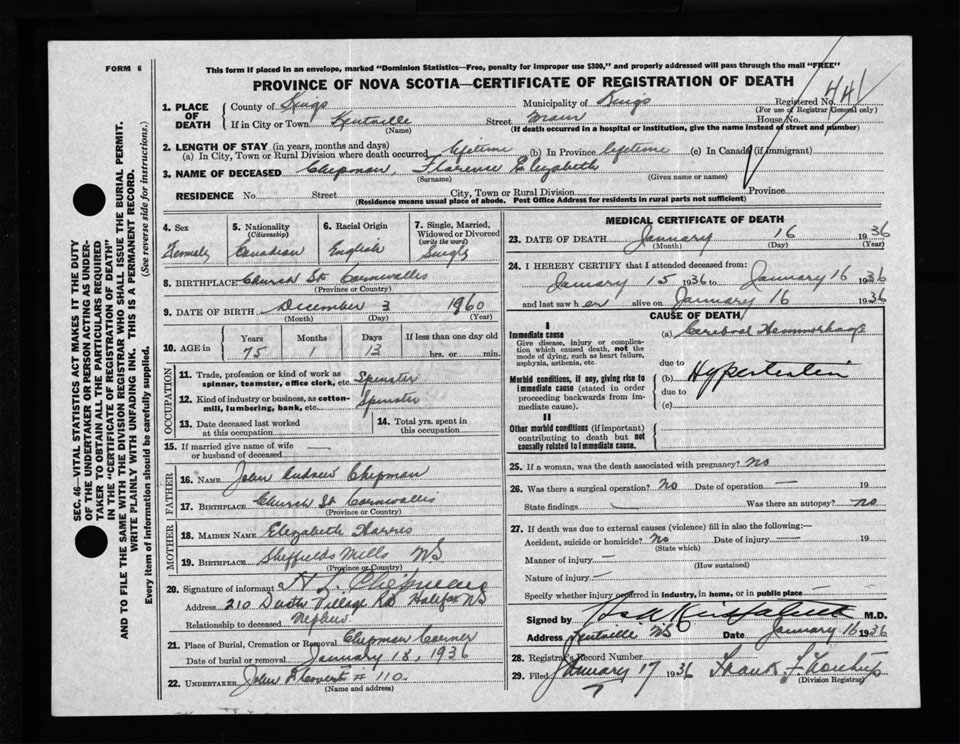 FORM 6
This form if placed in an envelope, marked "Dominion Statistics—Free, penalty for improper use $300," and properly addressed will pass through the mail "FREE"
PROVINCE OF NOVA SCOTIA—CERTIFICATE OF REGISTRATION OF DEATH
441
1. PLACE OF DEATH
County of Kings Municipality of Kings Registered No.
(For use of Registrar General only)
If in City or Town Kentville Street Main House No.
(Name) (If death occurred in a hospital or institution, give the name instead of street and number)
2. LENGTH OF STAY (in years, months and days)
(a) In City, Town or Rural Division where death occurred lifetime (b) In Province lifetime (c) In Canada (if immigrant)
3. NAME OF DECEASED Chipman, Florence Elizabeth
(Surname) (Given name or names)
RESIDENCE No. Street City, Town or Rural Division Province
(Residence means usual place of abode. Post Office Address for residents in rural parts not sufficient)
4. Sex Female
5. Nationality (Citizenship) Canadian
6. Racial Origin English
7. Single, Married, Widowed or Divorced (write the word) Single
8. BIRTHPLACE Church St Cornwallis
(Province or Country)
9. DATE OF BIRTH December 3 1960
(Month) (Day) (Year)
10. AGE in Years Months Days If less than one day old
75 1 13 hrs. or min.
OCCUPATION
11. Trade, profession or kind of work as spinner, teamster, office clerk, etc. Spinster
12. Kind of industry or business, as cotton-mill, lumbering, bank, etc. Spinster
13. Date deceased last worked at this occupation
14. Total yrs. spent in this occupation
15. If married give name of wife or husband of deceased
FATHER
16. NAME John Andrew Chipman
17. BIRTHPLACE Church St Cornwallis
(Province or Country)
MOTHER
18. MAIDEN NAME Elizabeth Harris
19. BIRTHPLACE Sheffields Mills NS
(Province or Country)
20. Signature of informant H L Chipman
Address 210 Village Rd Halifax NS
Relationship to deceased Nephew
21. Place of Burial, Cremation or Removal Chipman Corner
Date of burial or removal January 18, 1936
22. UNDERTAKER John # 110
(Name and address)
MEDICAL CERTIFICATE OF DEATH
23. DATE OF DEATH January 16 1936
(Month) (Day) (Year)
24. I HEREBY CERTIFY that I attended deceased from:
January 15 1936 to January 16 1936
and last saw h er alive on January 16 1936
CAUSE OF DEATH
I
Immediate cause
Give disease, injury or complication which caused death, not the mode of dying, such as heart failure, asphyxia, asthenia, etc.
(a) Cerebral Hemmorhage
due to
Morbid conditions, if any, giving rise to immediate cause (stated in order proceeding backwards from immediate cause).
(b) Hypertension
due to
(c)
II
Other morbid conditions (if important) contributing to death but not causally related to immediate cause.
25. If a woman, was the death associated with pregnancy? No
26. Was there a surgical operation? No Date of operation — 19
State findings — Was there an autopsy? no
27. If death was due to external causes (violence) fill in also the following:—
Accident, suicide or homicide? No Date of injury — 19
(State which)
Manner of injury —
(How sustained)
Nature of injury —
Specify whether injury occurred in industry, in home, or in public place —
Signed by M.D.
Address Kentville NS Date January 16 1936
28. Registrar's Record Number
29. Filed January 17 1936 Frank F
7
(Division Registrar)
SEC. 46—VITAL STATISTICS ACT MAKES IT THE DUTY
OF THE UNDERTAKER OR PERSON ACTING AS UNDER-
TAKER TO OBTAIN ALL THE PARTICULARS REQUIRED
IN THE "CERTIFICATE OF REGISTRATION OF DEATH"
AND TO FILE THE SAME WITH THE DIVISION REGISTRAR WHO SHALL ISSUE THE BURIAL PERMIT.
WRITE PLAINLY WITH UNFADING INK. THIS IS A PERMANENT RECORD.
Every item of information should be carefully supplied. (See reverse side for instructions.)